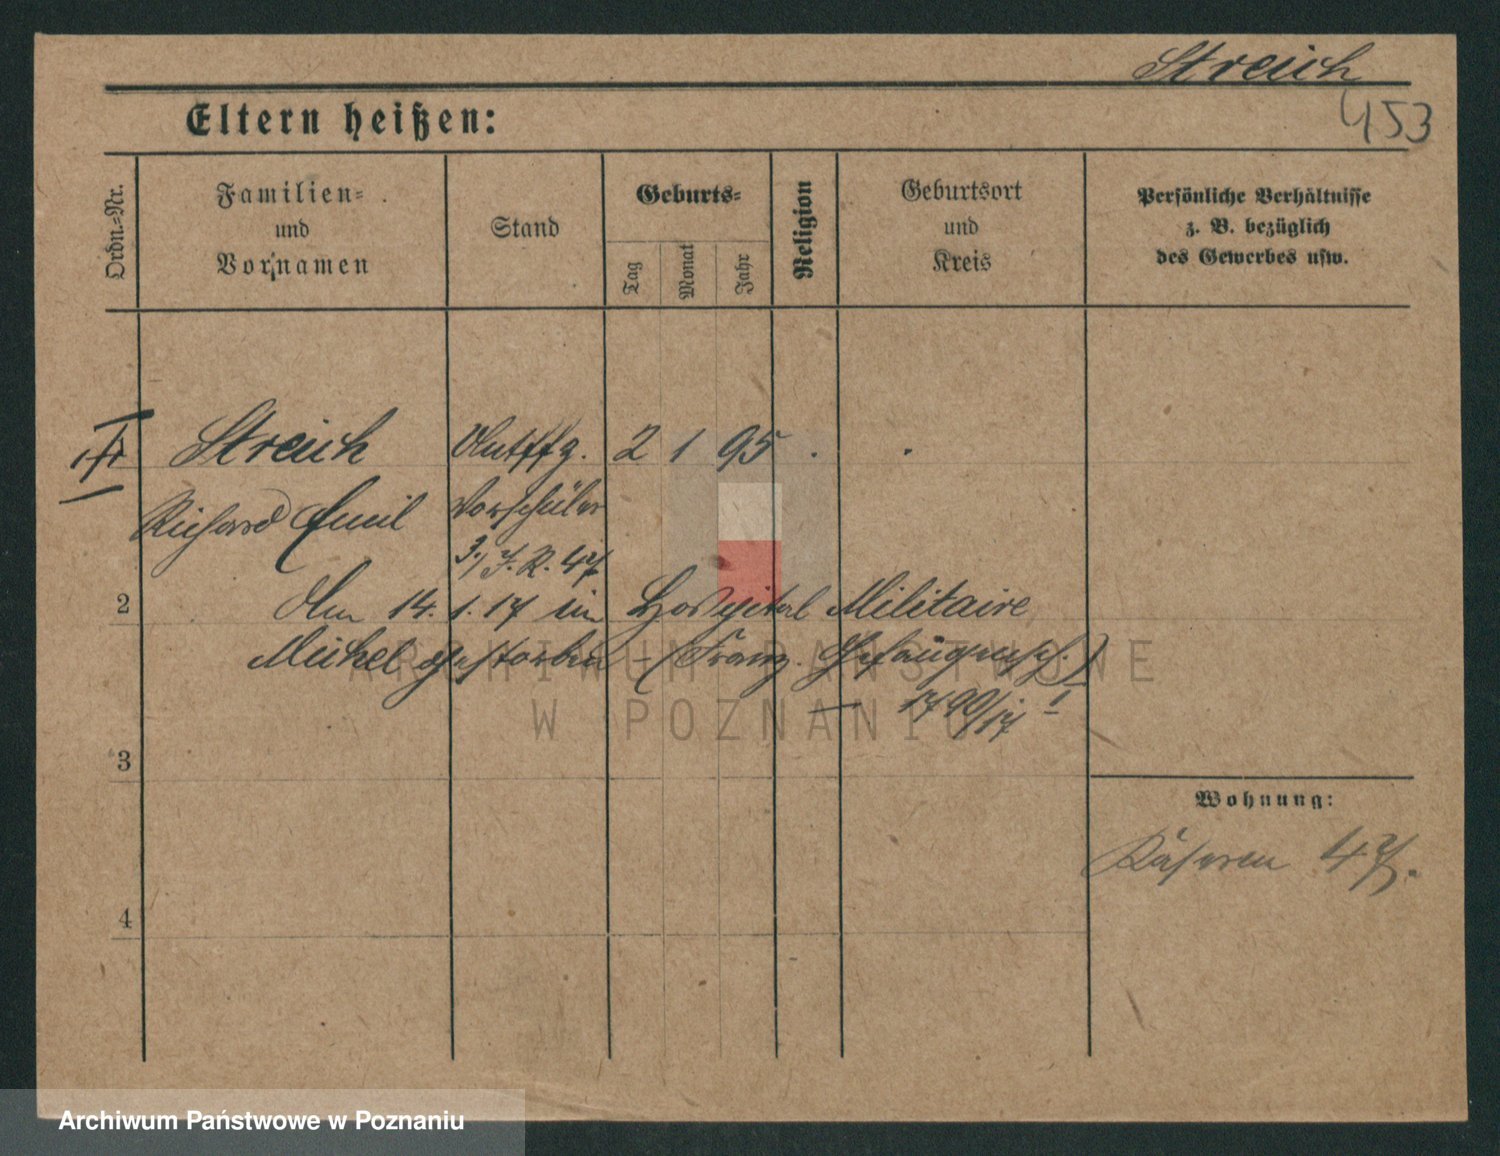 Streich
453
Eltern heißen:
Ordn.-Nr.
Familien-
und
Vornamen
Stand
Geburts-
Tag
Monat
Jahr
Religion
Geburtsort
und
Kreis
Persönliche Verhältnisse
z. B. bezüglich
des Gewerbes usw.
Streich
Untffz.
2 1 95
Richard Emil
Vorschüler
3./ J. R. 47
2
Am 14. 1. 17 im Hospital Militaire
Meihel gestorben - (Franz. Gefangensch.)
1790/17 I
3
Wohnung:
47.
4
ARCHIWUM PAŃSTWOWE
W POZNANIU
Archiwum Państwowe w Poznaniu